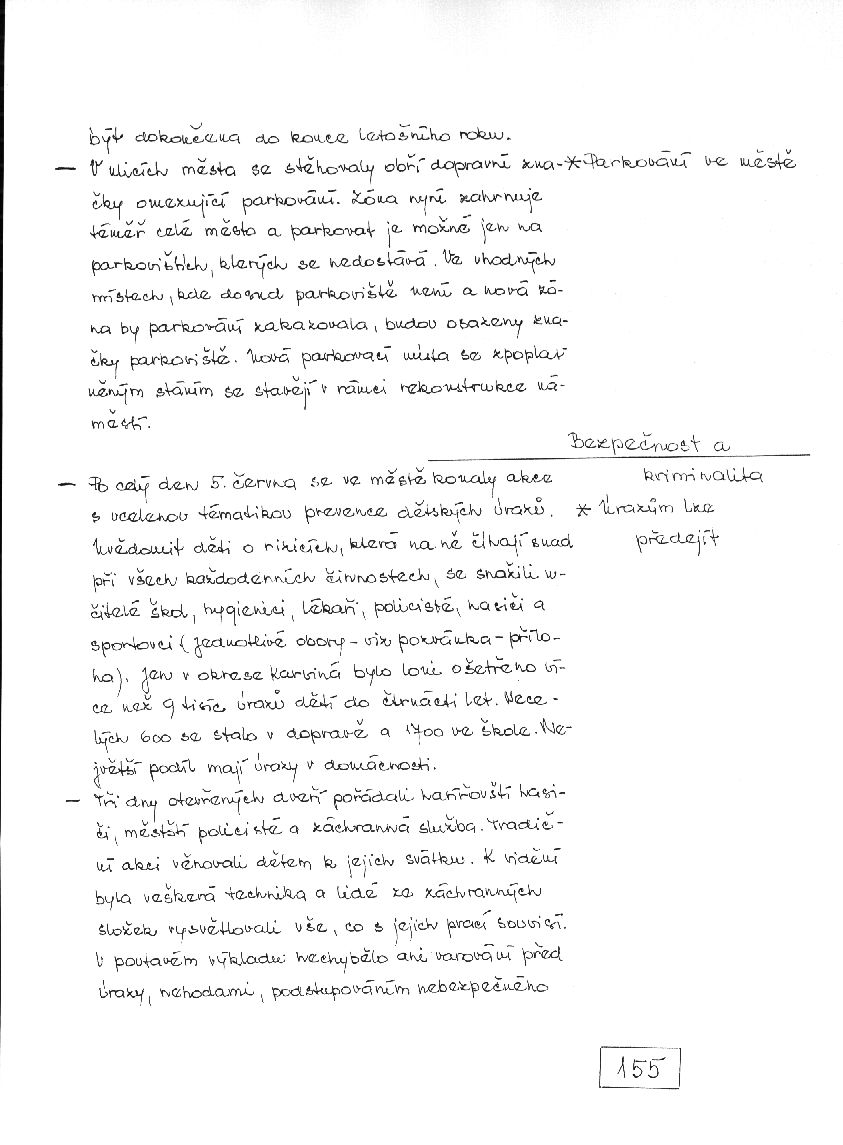 být dokončena do konce letošního roku.
— V ulicích města se stěhovaly obří dopravní zna- * Parkování ve městě
čky omezující parkování. Zóna nyní zahrnuje
téměř celé město a parkovat je možné jen na
parkovištích, kterých se nedostává. Ve vhodných
místech, kde dosud parkoviště není a nová zó-
na by parkování zakazovala, budou osazeny zna-
čky parkoviště. Nová parkovací místa se zpoplat
něným stáním se stavějí v rámci rekonstrukce ná-
městí.
Bezpečnost a
kriminalita
— Po celý den 5. června se ve městě konaly akce
s ucelenou tématikou prevence dětských úrazů. * Úrazům lze
předejít
Uvědomit děti o rizicích, která na ně číhají snad
při všech každodenních činnostech, se snažili u-
čitelé škol, hygienici, lékaři, policisté, hasiči a
sportovci (jednotlivé obory - viz pozvánka - přílo-
ha). Jen v okrese Karviná bylo loni ošetřeno ví-
ce než 9 tisíc úrazů dětí do čtrnácti let. Nece-
lých 600 se stalo v dopravě a 1700 ve škole. Ne-
jvětší podíl mají úrazy v domácnosti.
— Tři dny otevřených dveří pořádali havířovští hasi-
či, městští policisté a záchranná služba. Tradič-
ní akci věnovali dětem k jejich svátku. K vidění
byla veškerá technika a lidé ze záchranných
složek vysvětlovali vše, co s jejich prací souvisí.
V poutavém výkladu nechybělo ani varování před
úrazy, nehodami, podstupováním nebezpečného
155